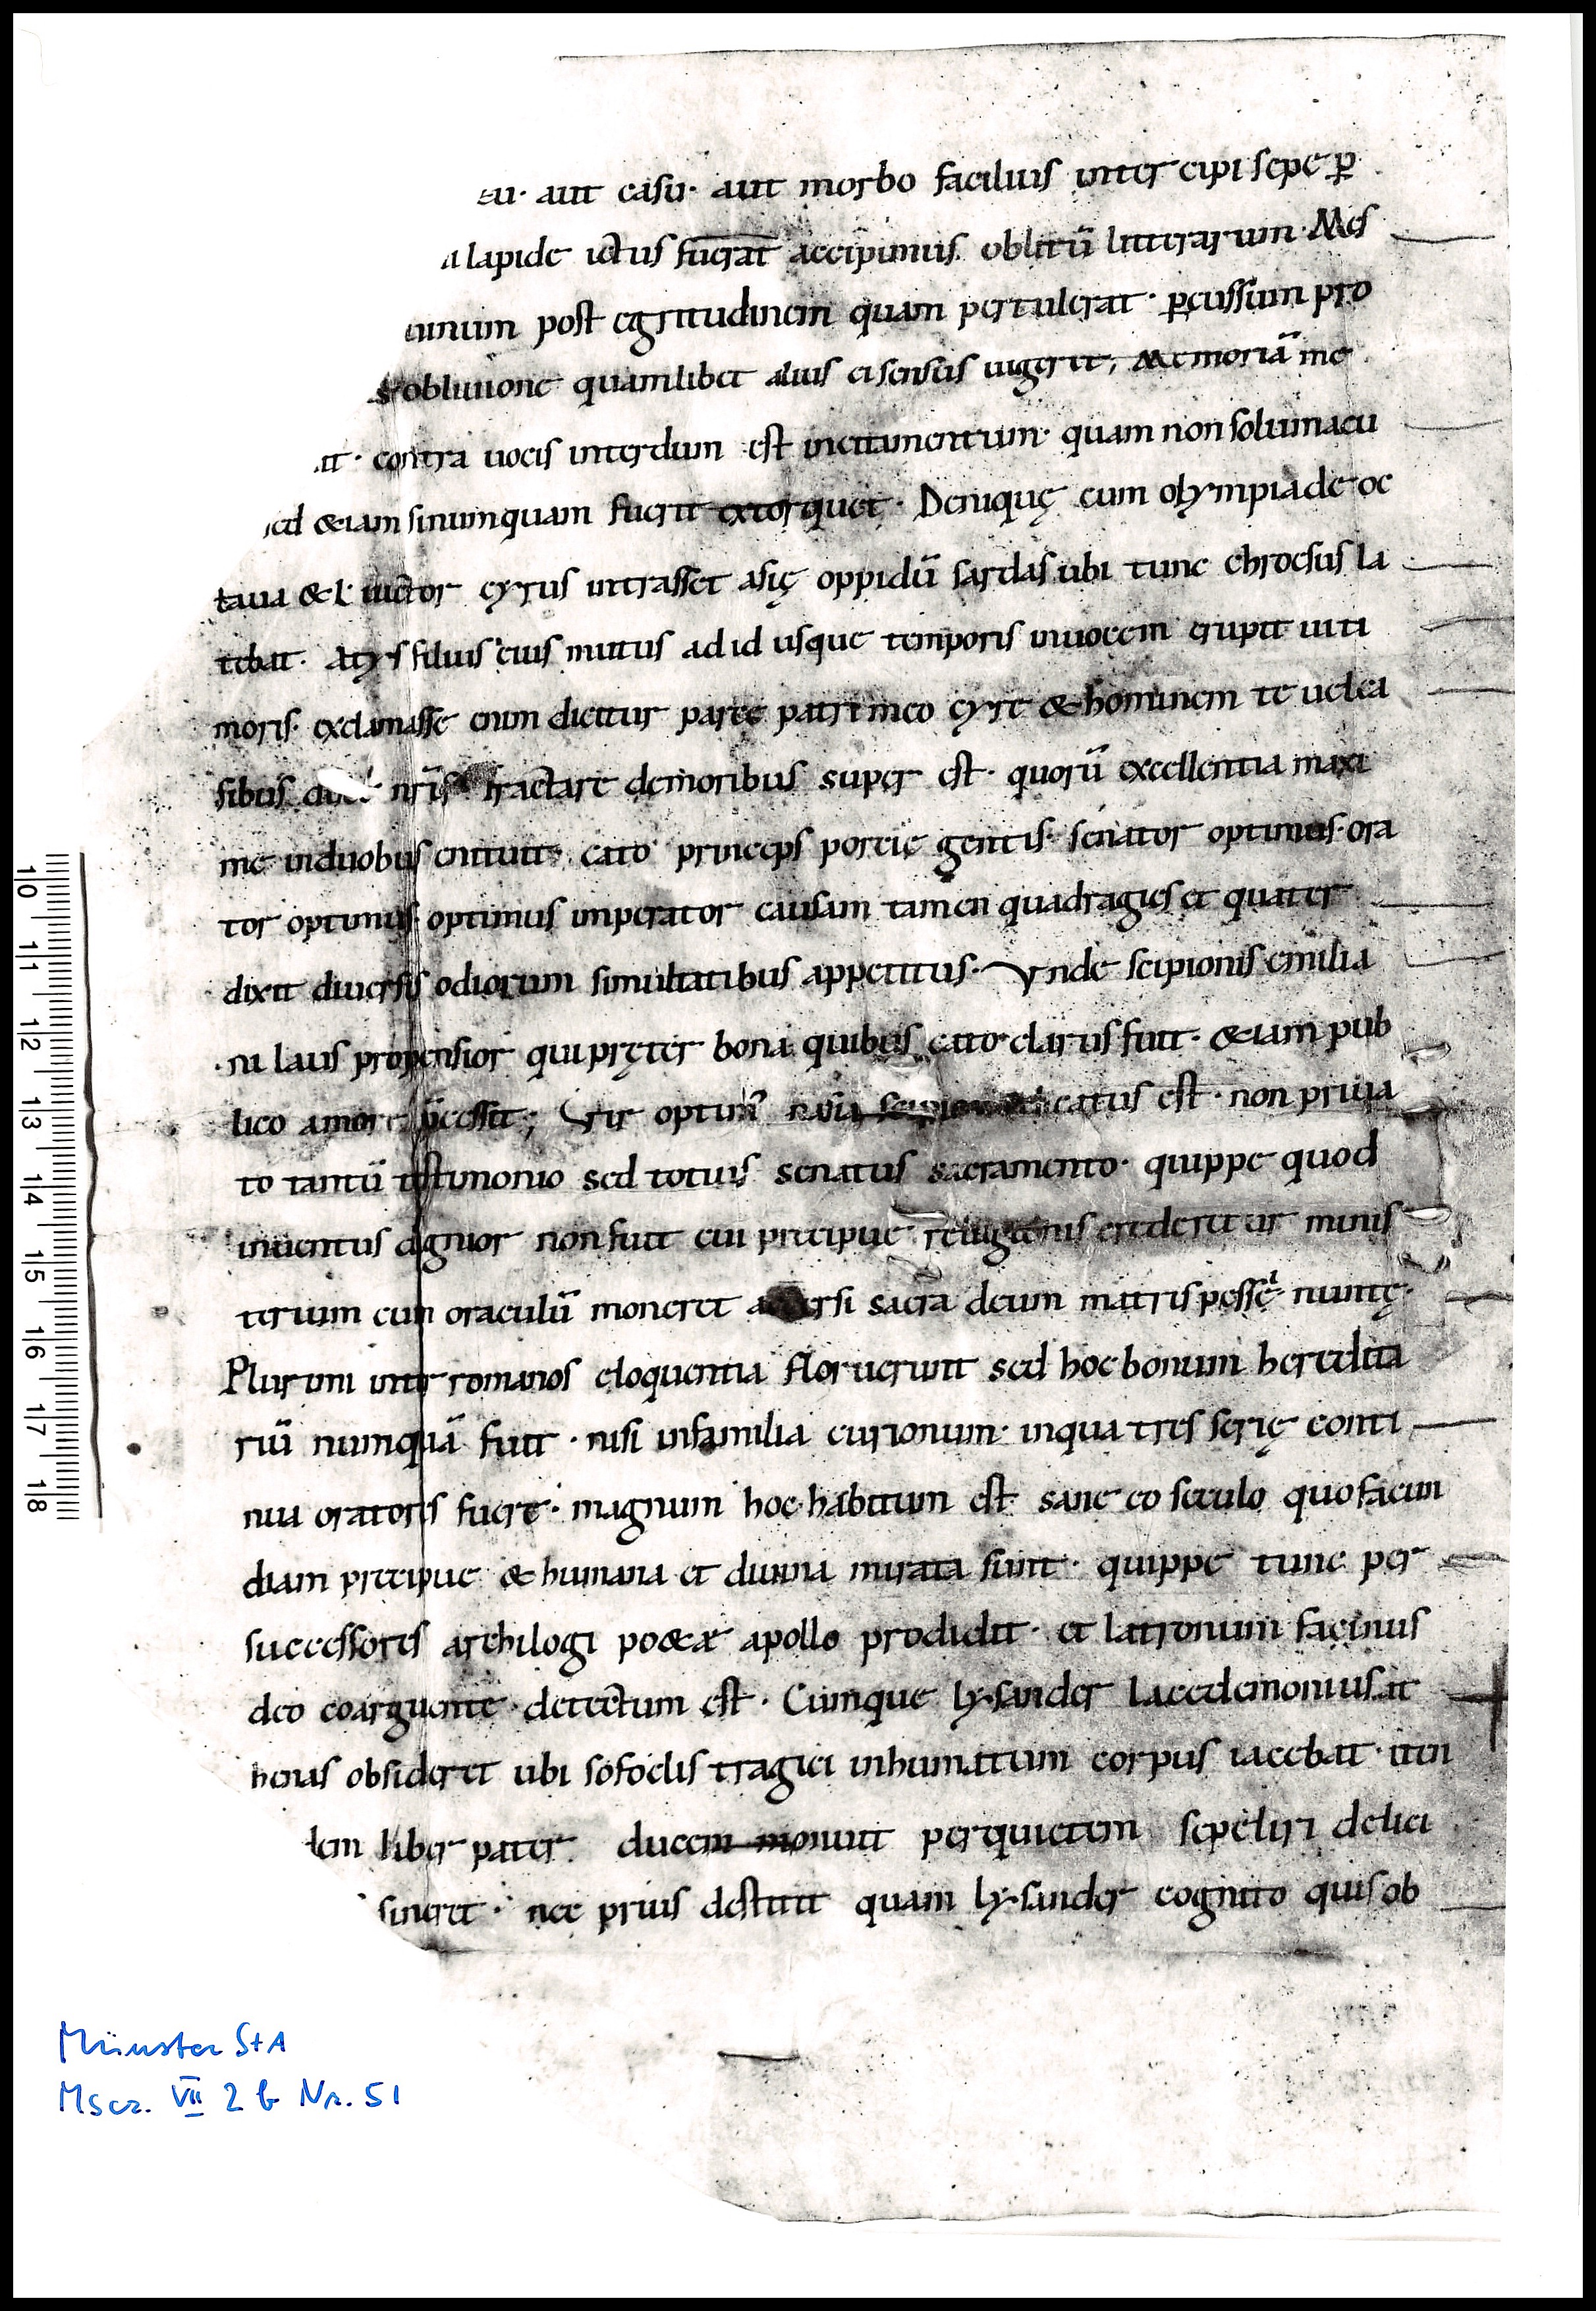 tu· aut casu· aut morbo facilius inter cipi sepe ꝑ
a lapide ictus fuerat accipimus oblitū litterarum· Mes
uinum post egritudinem quam pertulerat· ꝑcussum pro
s· obliuione quamlibet alius ei sensus uigeret; Memoriā me
it· contra uocis interdum est incitamentum· quam non solum acu
sed &iam sinumquam fuerit extorquet· Deniquę cum olympiade oc
taua & L· uictor cyrus intrasset asię oppidū sardas ubi tunc chroesus la
tebat· Atys filius eius mutus ad id usque temporis inuocem erupit ui ti
moris· exclamasse enim dicitur parce patri meo cyre & hominem te uel ca
sibus nr̄is tractare demoribus super est· quorū excellentia maxi
me induobus enituit· cato princeps porcię gentis· senator optimus· ora
tor optimus optimus imperator causam tamen quadragies et quater
dixit diuersis odiorum simultatibus appetitus· Vnde scipionis emilia
ni laus propensior qui pręter bona quibus cato clarus fuit· &iam pub
lico amore p̄cessit; Vir optim' nasica scipio iudicatus est· non priua
to tantū testimonio sed totius senatus sacramento· quippe quod
inuentus dignior non fuit cui precipue religionis crederetur minis
terium cum oraculū moneret accersi sacra deum matris pessę· nuntę·
Plurimi inter romanos eloquentia floruerunt sed hoc bonum heredita
riū numquā fuit· nisi infamilia curionum· inqua tres serię conti
nua oratoris fuere· magnum hoc habitum est sane eo seculo quo facun
diam precipue & humana et diuina mirata sunt· quippe tunc per
successores archilogi po&æ apollo prodidit· et latronum facinus
deo coarguente· detectum est· Cumque lysander lacedemonius at
henas obsideret ubi sofoclis tragici inhumatum corpus iacebat· iten
dem liber pater· ducem monuit per quietem sepeliri delici
sineret· nec prius destitit quam lysander cognito quis ob
10 11 12 13 14 15 16 17 18
Münster StA
Mscr. VII 2 b Nr. 51